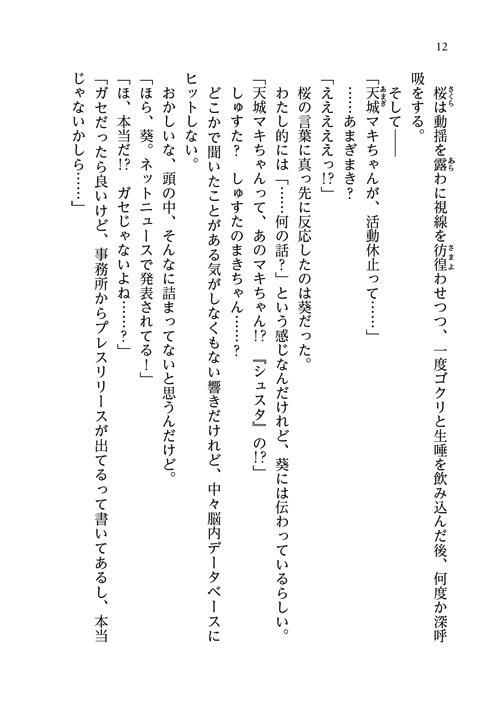 12
桜は動揺を露わに視線を彷徨わせつつ、一度ゴクリと生唾を飲み込んだ後、何度か深呼
吸をする。
そして――
「天城マキちゃんが、活動休止って……」
……あまぎまき？
「えええええっ!?」
桜の言葉に真っ先に反応したのは葵だった。
わたし的には「……何の話？」という感じなんだけれど、葵には伝わっているらしい。
「天城マキちゃんって、あのマキちゃん!?　『シュスタ』の!?」
しゅすた？　しゅすたのまきちゃん……？
どこかで聞いたことがある気がしなくもない響きだけれど、中々脳内データベースに
ヒットしない。
おかしいな、頭の中、そんなに詰まってないと思うんだけど。
「ほら、葵。ネットニュースで発表されてる！」
「ほ、本当だ!?　ガセじゃないよね……？」
「ガセだったら良いけど、事務所からプレスリリースが出てるって書いてあるし、本当
じゃないかしら……」